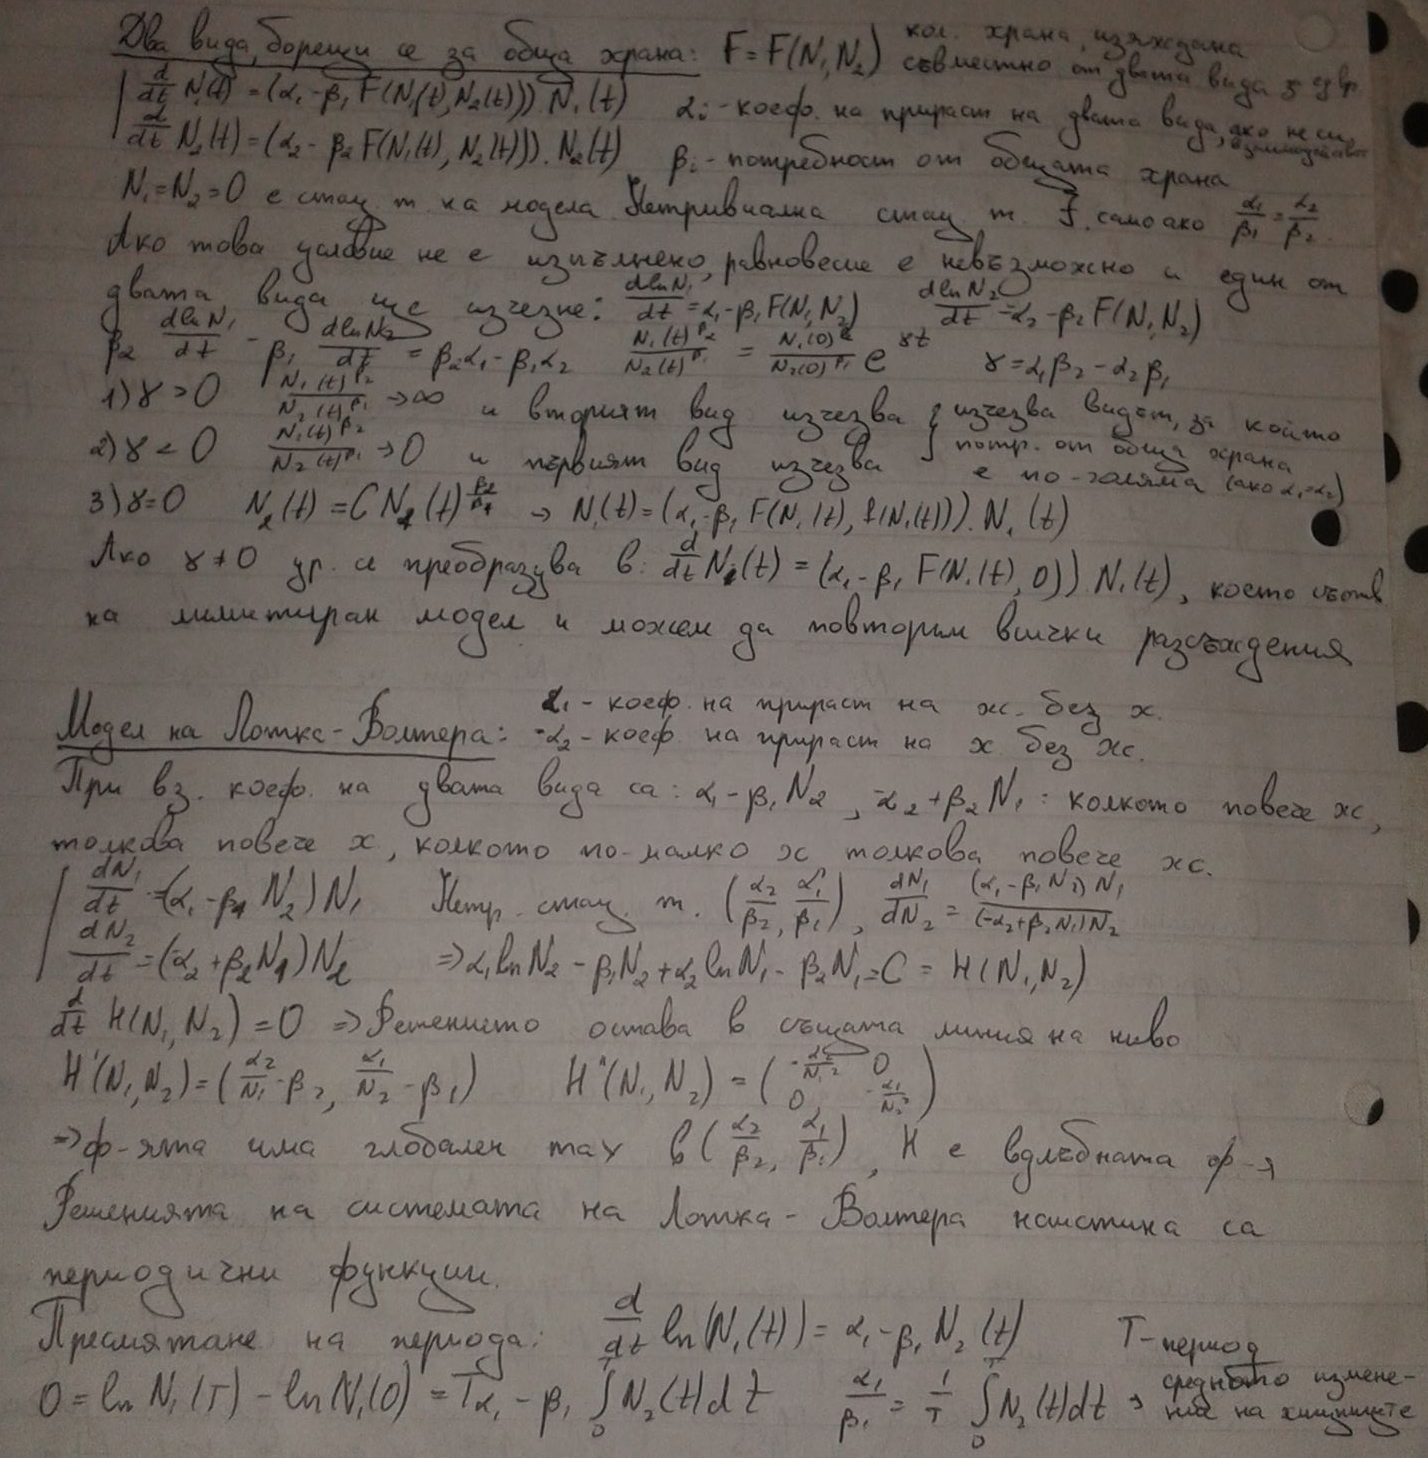 Два вида, борещи се за обща храна: F=F(N₁,N₂) кол. храна, изяждана
съвместно от двата вида за ед. вр.
d/dt N₁(t) = (α₁-β₁F(N₁(t),N₂(t))).N₁(t) αᵢ - коеф. на прираст на двата вида, ако не си взаимодейств
d/dt N₂(t) = (α₂-β₂F(N₁(t),N₂(t))).N₂(t) βᵢ - потребност от общата храна
N₁=N₂=0 е стац. т. на модела. Нетривиална стац. т. ∃ само ако α₁/β₁ = α₂/β₂.
Ако това условие не е изпълнено, равновесие е невъзможно и един от
двата вида ще изчезне: dlnN₁/dt = α₁-β₁F(N₁,N₂) dlnN₂/dt = α₂-β₂F(N₁,N₂)
β₂ dlnN₁/dt - β₁ dlnN₂/dt = β₂α₁-β₁α₂ N₁(t)^β₂/N₂(t)^β₁ = N₁(0)^β₂/N₂(0)^β₁ e^γt γ=α₁β₂-α₂β₁
1) γ>0 N₁(t)^β₂/N₂(t)^β₁ → ∞ и вторият вид изчезва } изчезва видът, за който
2) γ<0 N₁(t)^β₂/N₂(t)^β₁ → 0 и първият вид изчезва } потр. от обща храна
е по-голяма (ако α₁=α₂)
3) γ=0 N₂(t) = CN₁(t)^β₂/β₁ → N₁(t) = (α₁-β₁F(N₁(t), f(N₁(t)))).N₁(t)
Ако γ≠0 ур. се преобразува в: d/dt N₁(t) = (α₁-β₁F(N₁(t),0)).N₁(t), което съотв
на лимитиран модел и можем да повторим всички разсъждения
Модел на Лотка-Волтера: α₁ - коеф. на прираст на ж. без х.
-α₂ - коеф. на прираст на х. без ж.
При вз. коеф. на двата вида са: α₁-β₁N₂, -α₂+β₂N₁: колкото повече ж,
толкова повече х, колкото по-малко х толкова повече ж.
dN₁/dt = (α₁-β₁N₂)N₁ Нетр. стац. т. (α₂/β₂, α₁/β₁), dN₁/dN₂ = (α₁-β₁N₂)N₁/(-α₂+β₂N₁)N₂
dN₂/dt = (-α₂+β₂N₁)N₂ ⇒ α₁lnN₂ - β₁N₂ + α₂lnN₁ - β₂N₁ = C = H(N₁,N₂)
d/dt H(N₁,N₂) = 0 ⇒ Решението остава в същата линия на ниво
H'(N₁,N₂) = (α₂/N₁-β₂, α₁/N₂-β₁) H''(N₁,N₂) = (-α₂/N₁² 0
0, -α₁/N₂²)
⇒ ф-ята има глобален max в (α₂/β₂, α₁/β₁), H е вдлъбната ф-я
Решенията на системата на Лотка-Волтера наистина са
периодични функции.
Пресмятане на периода: d/dt ln(N₁(t)) = α₁-β₁N₂(t) T-период
0 = lnN₁(T) - ln(N₁(0)) = Tα₁-β₁ ∫₀ᵀ N₂(t)dt α₁/β₁ = 1/T ∫₀ᵀ N₂(t)dt → средното измене-
ние на хищниците